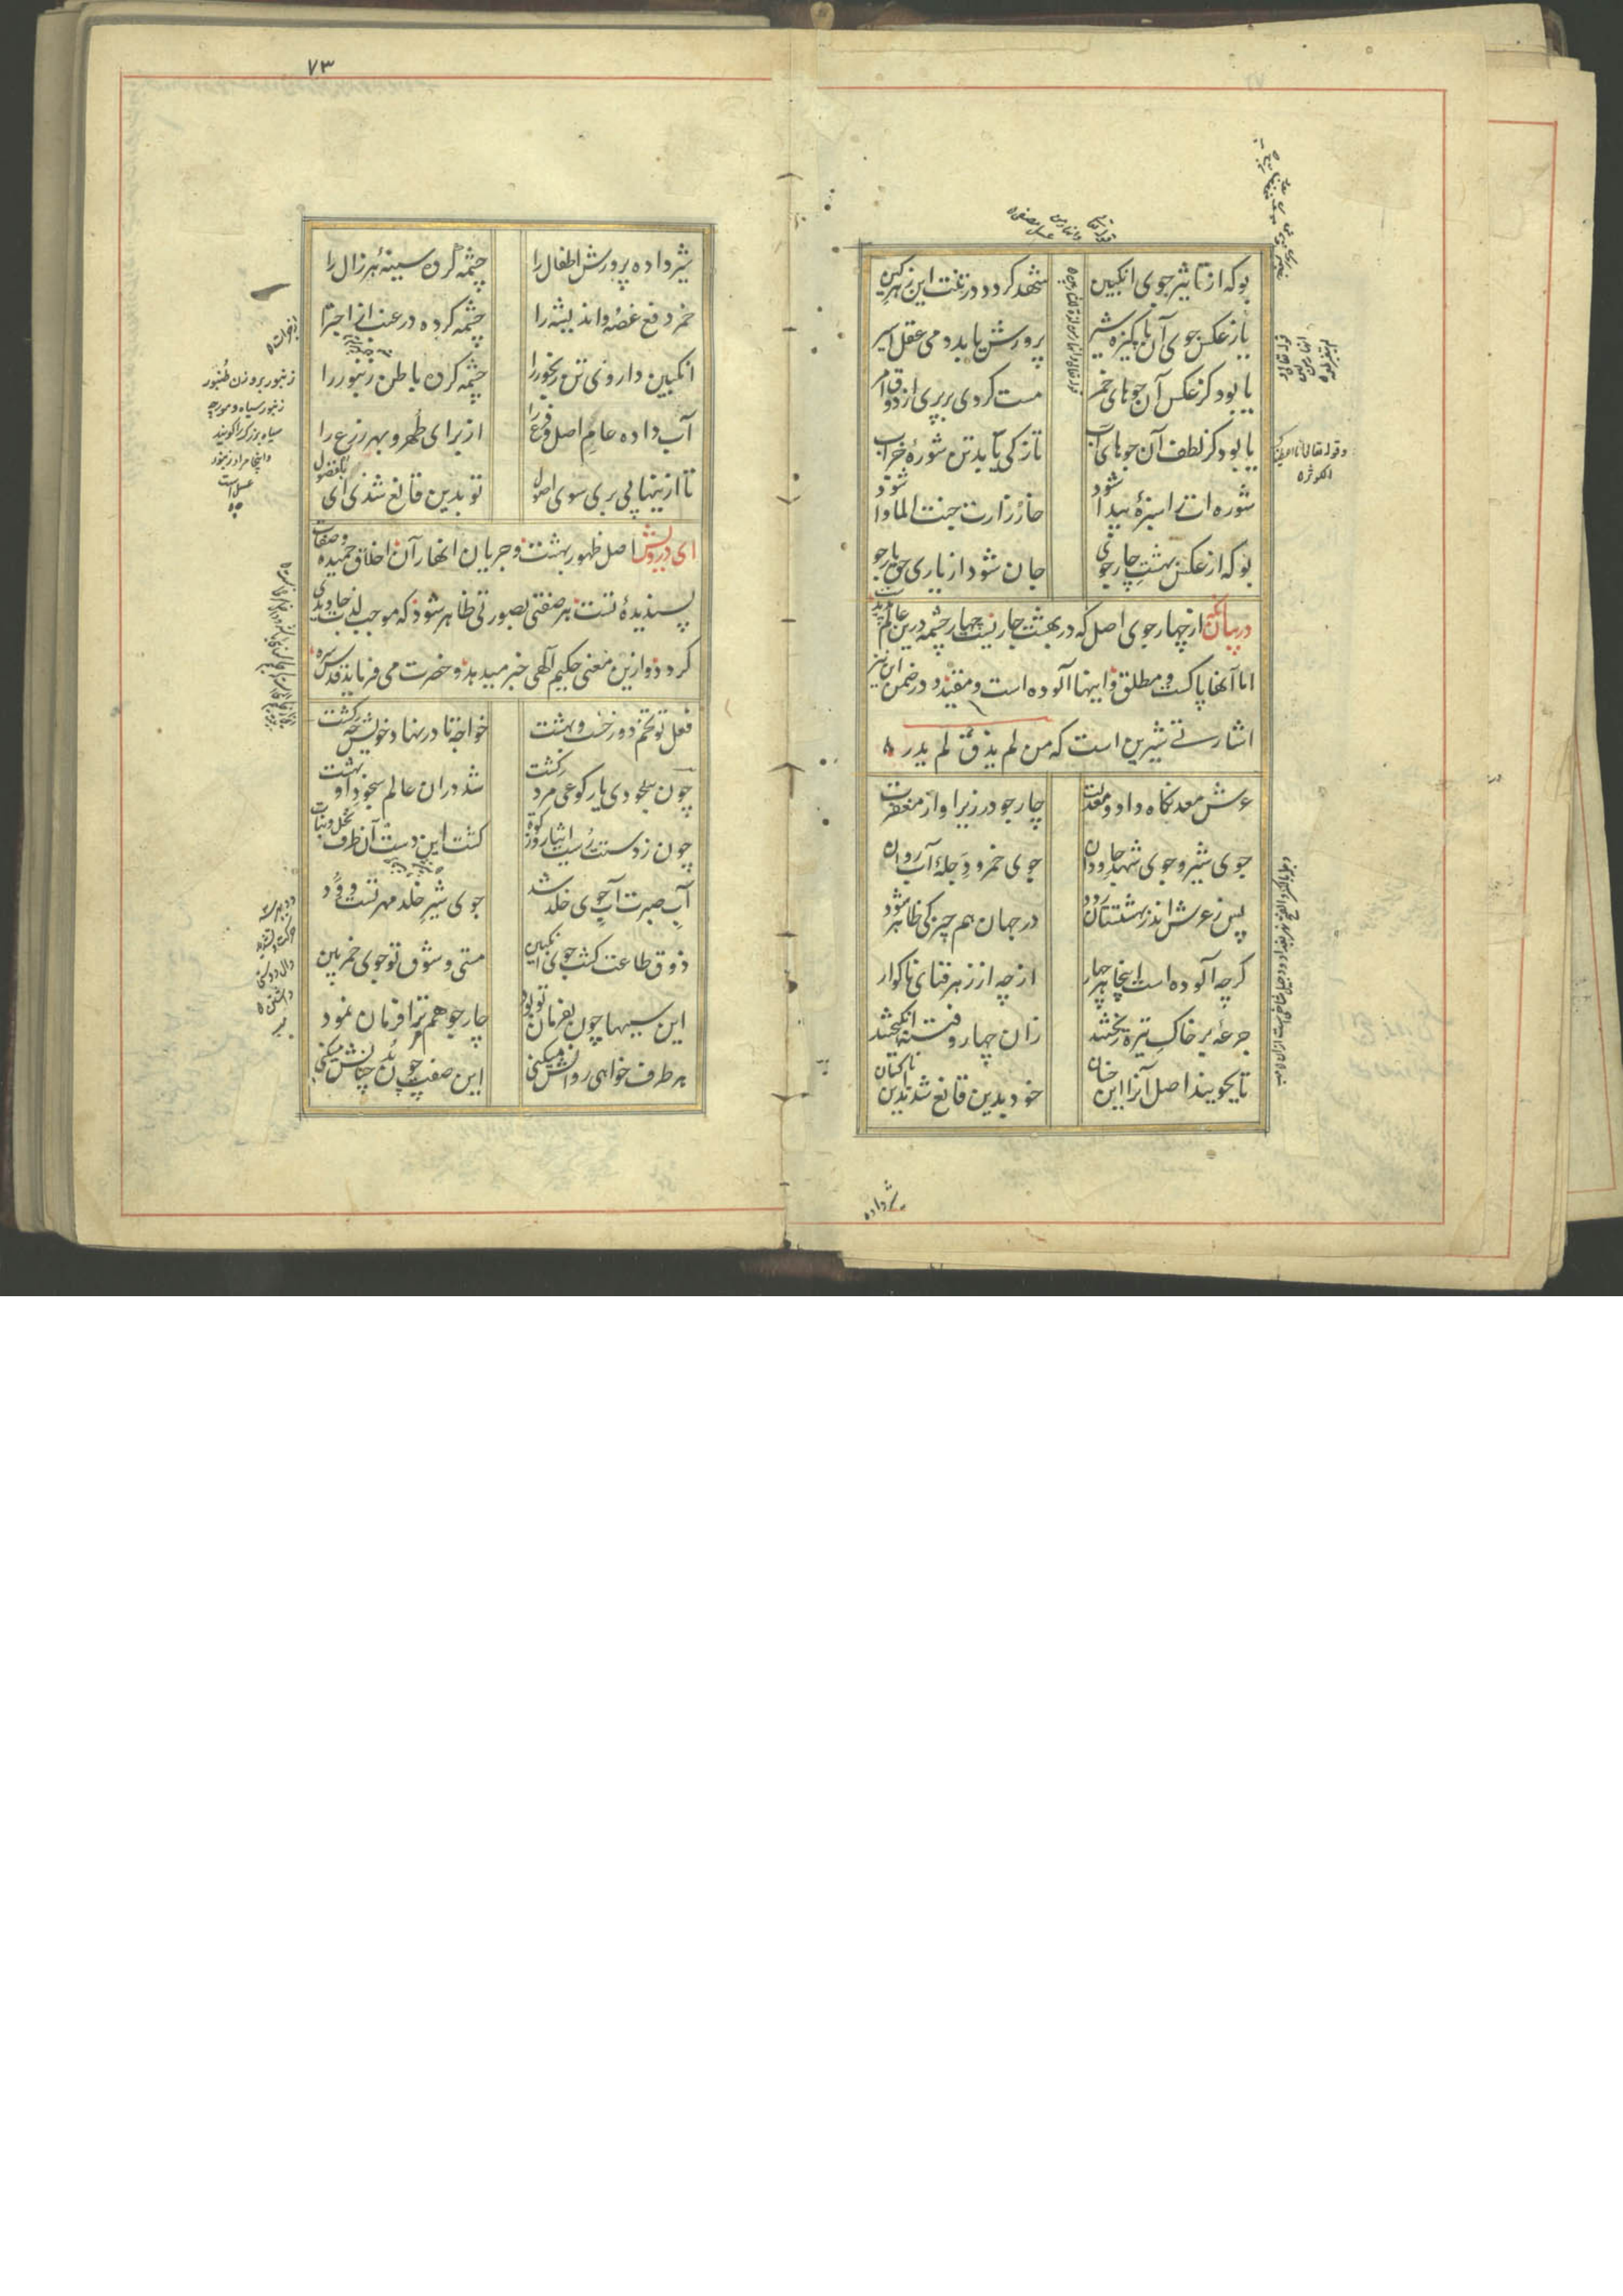 بوکه از تاثیر جوی انکبین شهد کردد در تنت این زهر کین
یا ز عکس جوی آن پاکیزه شیر پرورش یابد دمی عقل اسیر
یا بود کز عکس آن جوهای خمر مست کردی بر بری از ذوق امر
یا بود کز لطف آن جوهای آب تازکی یابد تن شورهٔ خراب
شوره ات را سبزهٔ پیدا شود خارزارت جنت الماوا شود
بوکه از عکس بهشت چارجوی جان شود از یاری حق یارجو
در بیان آنکه از چهار جوی اصل که در بهشت جاریست چهار چشمه درین عالم پدید
اما آنها پاکست و مطلق و اینها آلوده است و مقید و در ضمن این نیز
اشارتی شیرین است که من لم یذق لم یدر
عرش معدنکاه داد و معدلت چارجو در زیر او از مغفرت
جوی شیر و جوی شهد جاودان جوی خمر و دجلهٔ آب روان
پس ز عرش اندر بهشتستان رود در جهان هم چیزکی ظاهر شود
کرچه آلوده است اینجا هر چهار از چه از زهر فنای ناکوار
جرعه بر خاک تیره ریختند زان چهار و فتنه انکیختند
تا بجویند اصل آنرا این خسان خود بدین قانع شدند این ناکسان
شیر داده
۷۳
شیر داده پرورش اطفال را چشمه کرده سینهٔ هر زال را
خمر دفع غصه و اندیشه را چشمه کرده در عنب از اجترا
انکبین داروی تن رنجور را چشمه کرده باطن زنبور را
آب داده عام اصل و فرع را از برای طهر و بهر زرع را
تا ازینها پی بری سوی اصول تو بدین قانع شدی ای بالفضول
ای درویش اصل ظهور بهشت و جریان انهار آن اخلاق حمیده و صفات
پسندیدهٔ تست هر صفتی بصورتی ظاهر شود که موجب لذت جاویدی
کردد و ازین معنی حکیم آلهی خبر میدهد و حضرت می فرماید قدس سره
فعل تو تخم دوزخست و بهشت خواجه تا در نهاد خویش چه کشت
چون سجودی یا رکوعی مرد کشت شد دران عالم سجود او بهشت
چون ز دستت رست ایثار و زکوة کشت این دست آن طرف نخل و نبات
آب صبرت آب جوی خلد شد جوی شیر خلد مهر تست و ود
ذوق طاعت کشت جوی انکبین مستی و شوق تو جوی خمر بین
این سببها چون بفرمان تو بود چارجو هم مر ترا فرمان نمود
هر طرف خواهی روانش میکنی این صفت چون بد چنانش میکنی
زنبور بر وزن طنبور
زنبور سیاه و مورچه
سیاه بزرک را کویند
و اینجا مراد زنبور
عسل است